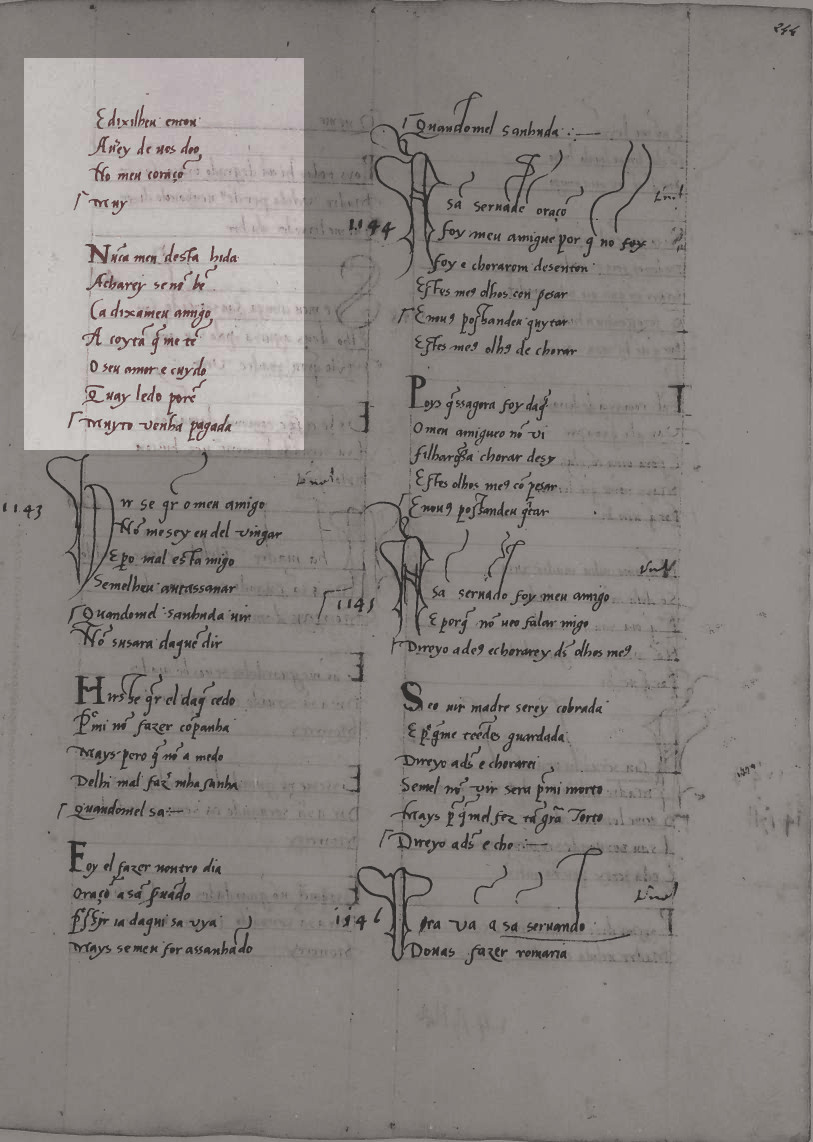 244
Edixilheu enton
Auey de uos doo
No meu coraçõ
Muy
Nũca meu desta uida
Acharey se nõ bẽ
Ca dixameu amigo
A coyta q̃ me tẽ
O seu amor e cuydo
Quay ledo porẽ
Muyto uenha pagada
1143
Ir se q̃r o meu amigo
Nõ me sey eu del vingar
E pero mal esta migo
Semelheu antassanar
Quandomel sanhuda uir
Nõ susara daquẽdir
Hirsse q̃r el daq̃ cedo
P̃ mi nõ fazer cõpanha
Mays pero q̃ nõ a medo
Delhi mal faz mha sanha
Quandomel sa
Foy el fazer noutro dia
Oraçõ a sã s̃uãdo
mays semeu for assanhãdo
Quandomel sanhuda
1144
A sã seruãde oraçõ
foy meu amigue por q̃ no foy
foy e chorarom desenton
Estes meꝯ olhos con pesar
E nouꝯ possandeu quytar
Estes meꝯ olhꝯ de chorar
Poys q̃ssagora foy daq̃
O meu amigueo nõ vi
filharq̃sa chorar desy
Estes olhos meꝯ cõ pesar
E nouꝯ possandeu q̃tar
1145
A sã seruãdo foy meu amigo
E porq̃ nõ ueo falar migo
Direyo a deꝯ echorarey dꝯ olhos meꝯ
Seo uir madre serey cobrada
E p̃q̃ me teedes guardada
Direyo adꝯ e chorarei
Semel nõ uir sera p̃mi morto
Mays p̃q̃ mel fez tã grã torto
Direyo adꝯ e cho
1146
Ora va a sa seruando
Donas fazer romaria